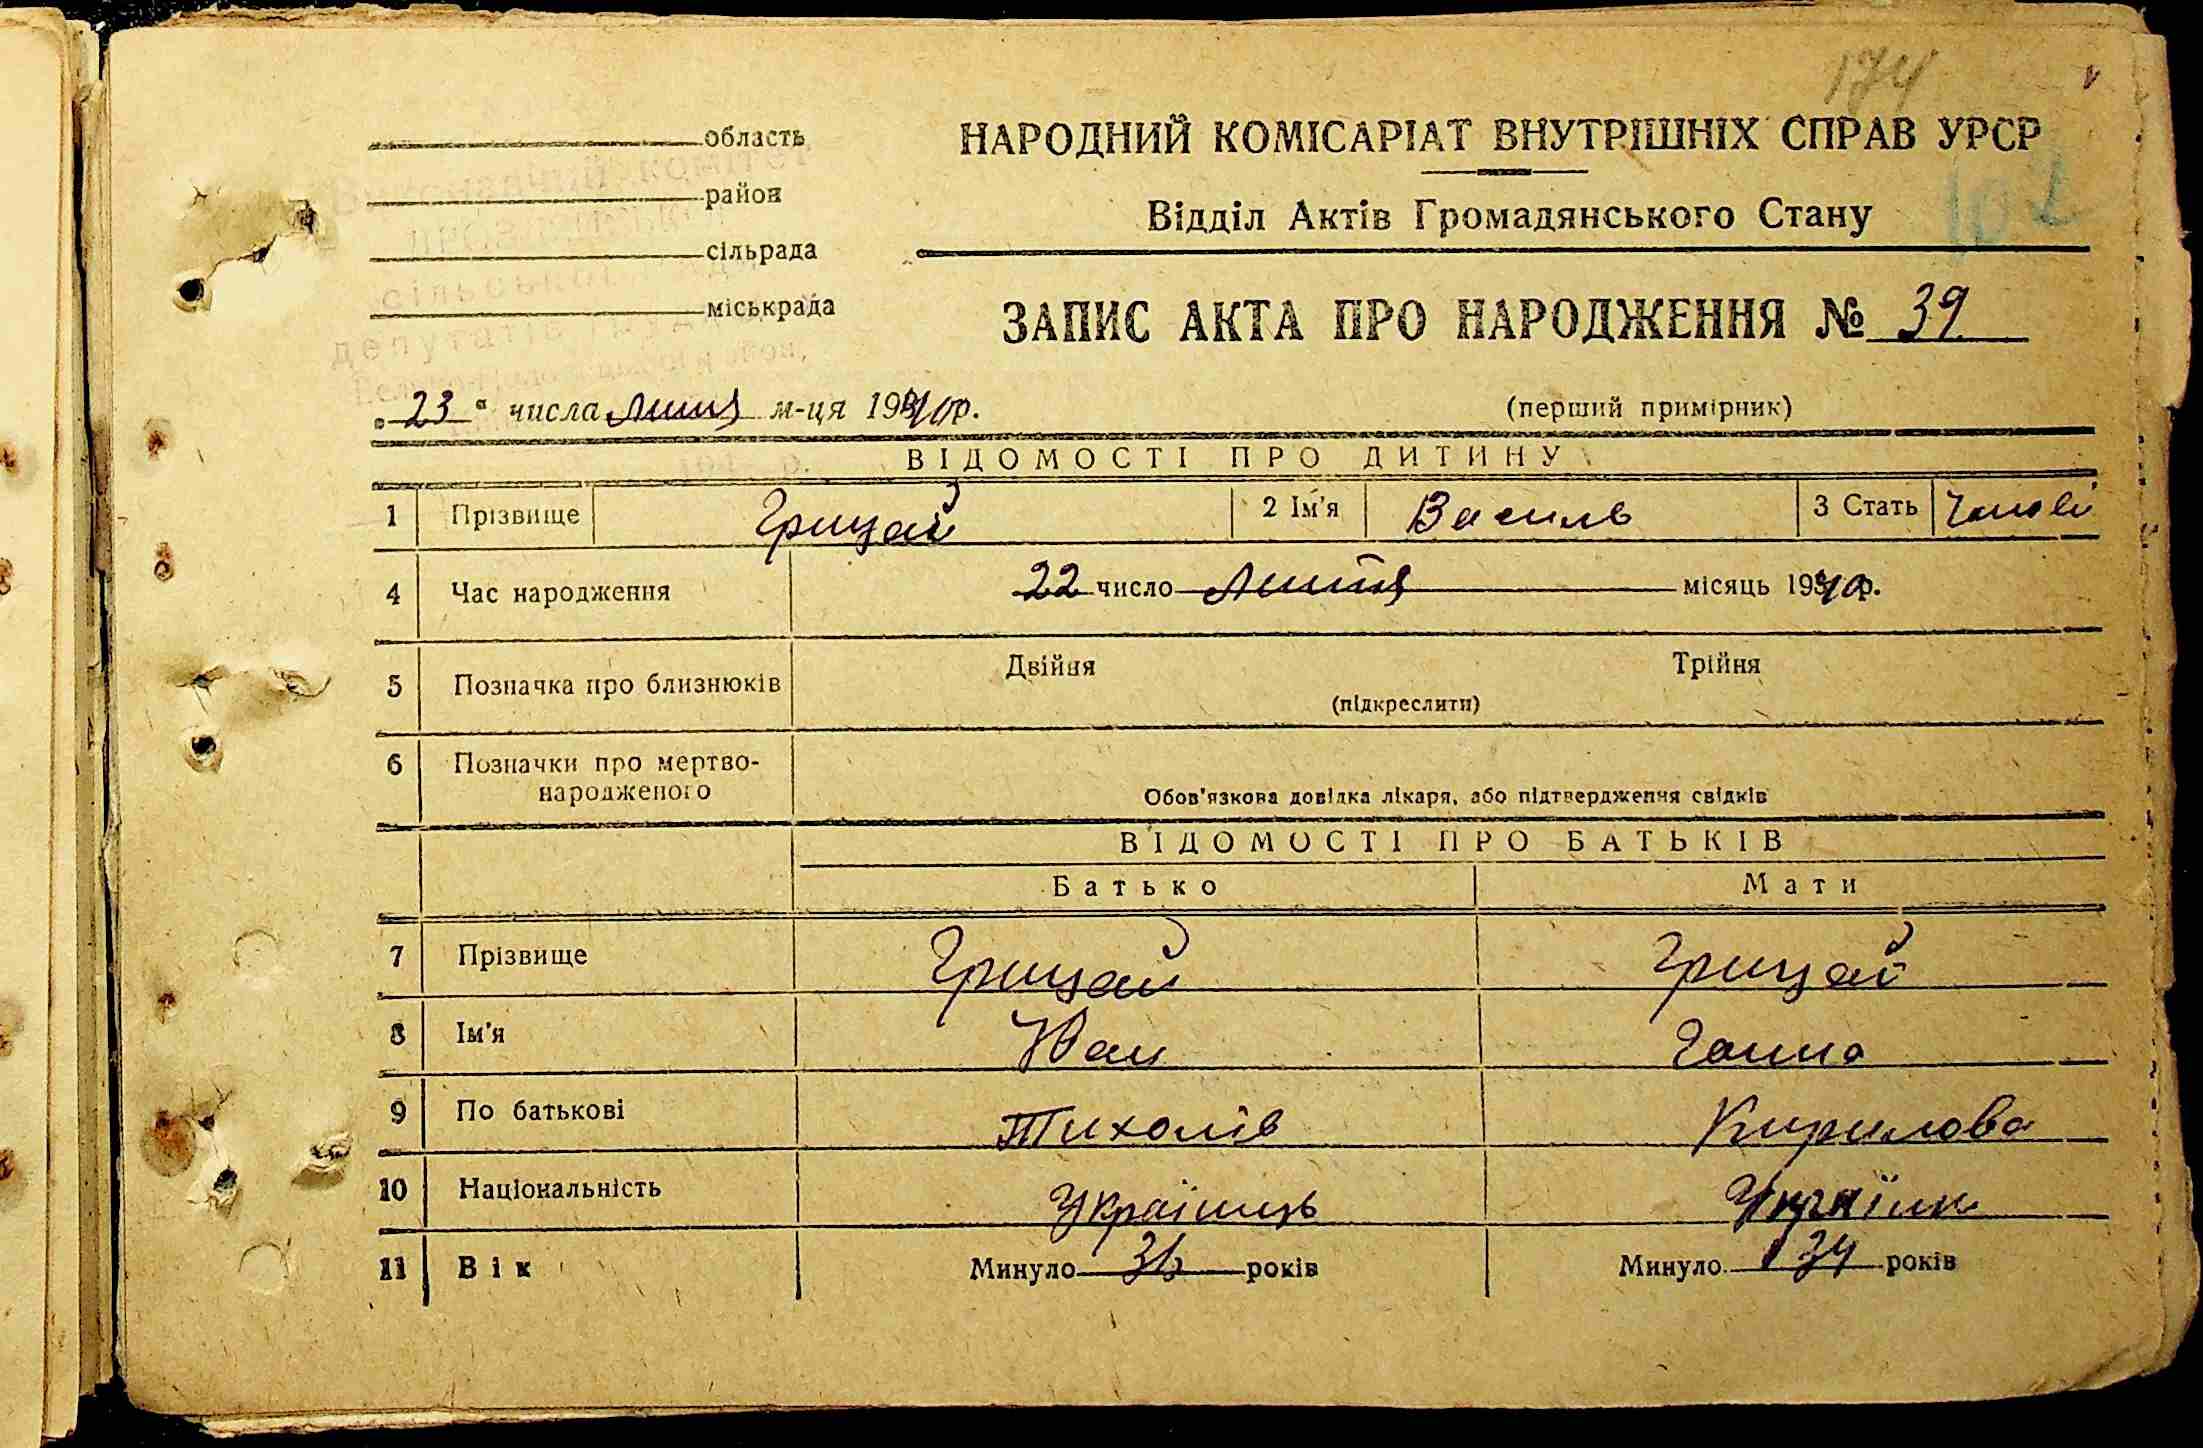 174
область
НАРОДНИЙ КОМІСАРІАТ ВНУТРІШНІХ СПРАВ УРСР
район
102
Відділ Актів Громадянського Стану
сільрада
міськрада
ЗАПИС АКТА ПРО НАРОДЖЕННЯ № 39
„23“ числа липня м-ця 1940 р.
(перший примірник)
ВІДОМОСТІ ПРО ДИТИНУ
1 Прізвище Грицай 2 Ім'я Василь 3 Стать чолові
4 Час народження 22 число липня місяць 1940 р.
5 Позначка про близнюків Двійня Трійня
(підкреслити)
6 Позначки про мертво-
народженого
Обов'язкова довідка лікаря, або підтвердження свідків
ВІДОМОСТІ ПРО БАТЬКІВ
Батько Мати
7 Прізвище Грицай Грицай
8 Ім'я Иван Ганна
9 По батькові Тихонів Кирилова
10 Національність Українець Українк
11 Вік Минуло 36 років Минуло 34 років